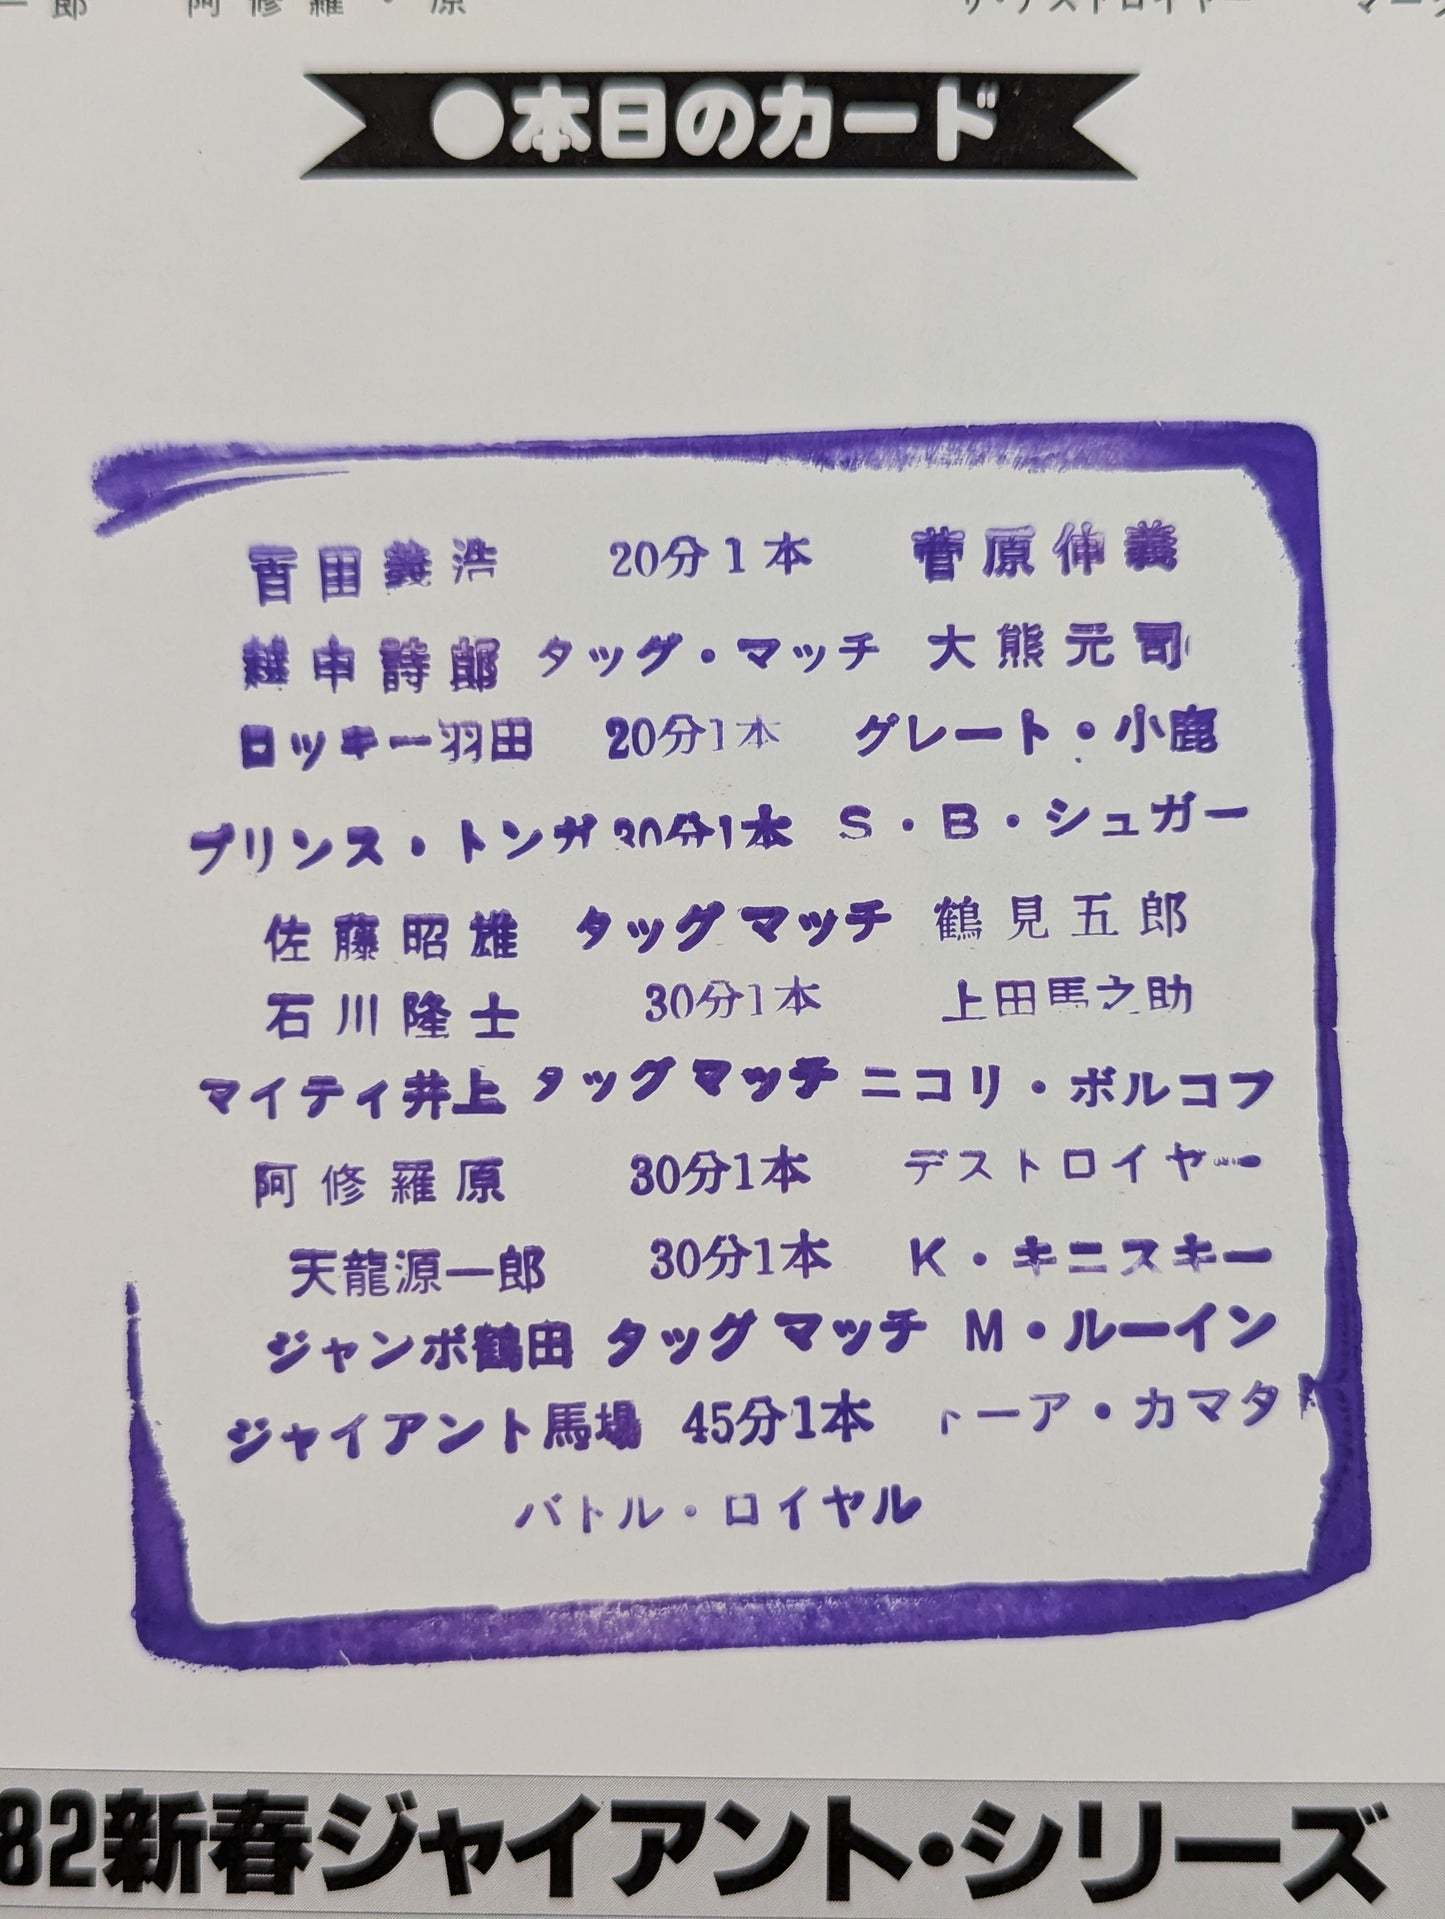 一郎　阿修羅・原　ザ・デストロイヤー　マーク
●本日のカード
百田義浩　20分1本　菅原伸義
越中詩郎　タッグ・マッチ　大熊元司
ロッキー羽田　20分1本　グレート・小鹿
プリンス・トンガ　30分1本　S・B・シュガー
佐藤昭雄　タッグマッチ　鶴見五郎
石川隆士　30分1本　上田馬之助
マイティ井上　タッグマッチ　ニコリ・ボルコフ
阿修羅原　30分1本　デストロイヤー
天龍源一郎　30分1本　K・キニスキー
ジャンボ鶴田　タッグマッチ　M・ルーイン
ジャイアント馬場　45分1本　トーア・カマタ
バトル・ロイヤル
82新春ジャイアント・シリーズ